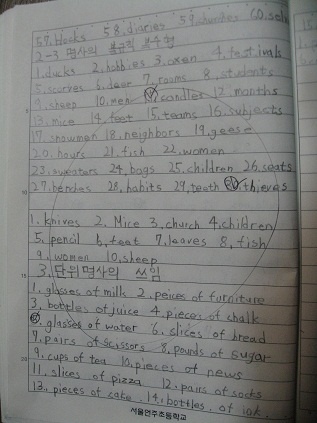 57. Hooks 58. diaries 59. churches 60.
2-3 명사의 불규칙 복수형
1. ducks 2. hobbies 3. oxen 4. festivals
5. scarves 6. deer 7. rooms 8. students
9. sheep 10. men 11. candles 12. months
13. mice 14. feet 15. teams 16. subjects
17. snowmen 18. neighbors 19. geese
20. hours 21. fish 22. women
23. sweaters 24. bags 25. children 26. seats
27. benches 28. habits 29. teeth 30. thieves
1. knives 2. Mice 3. church 4. children
5. pencil 6. feet 7. leaves 8. fish
9. women 10. sheep
3. 단위명사의 쓰임
1. glasses of milk 2. peices of furniture
3. bottles of juice 4. pieces of chalk
5. glasses of water 6. slices of bread
7. pairs of scissors 8. pounds of sugar
9. cups of tea 10. pieces of news
11. slices of pizza 12. pairs of socks
13. pieces of cake 14. bottles of ink
서울언주초등학교